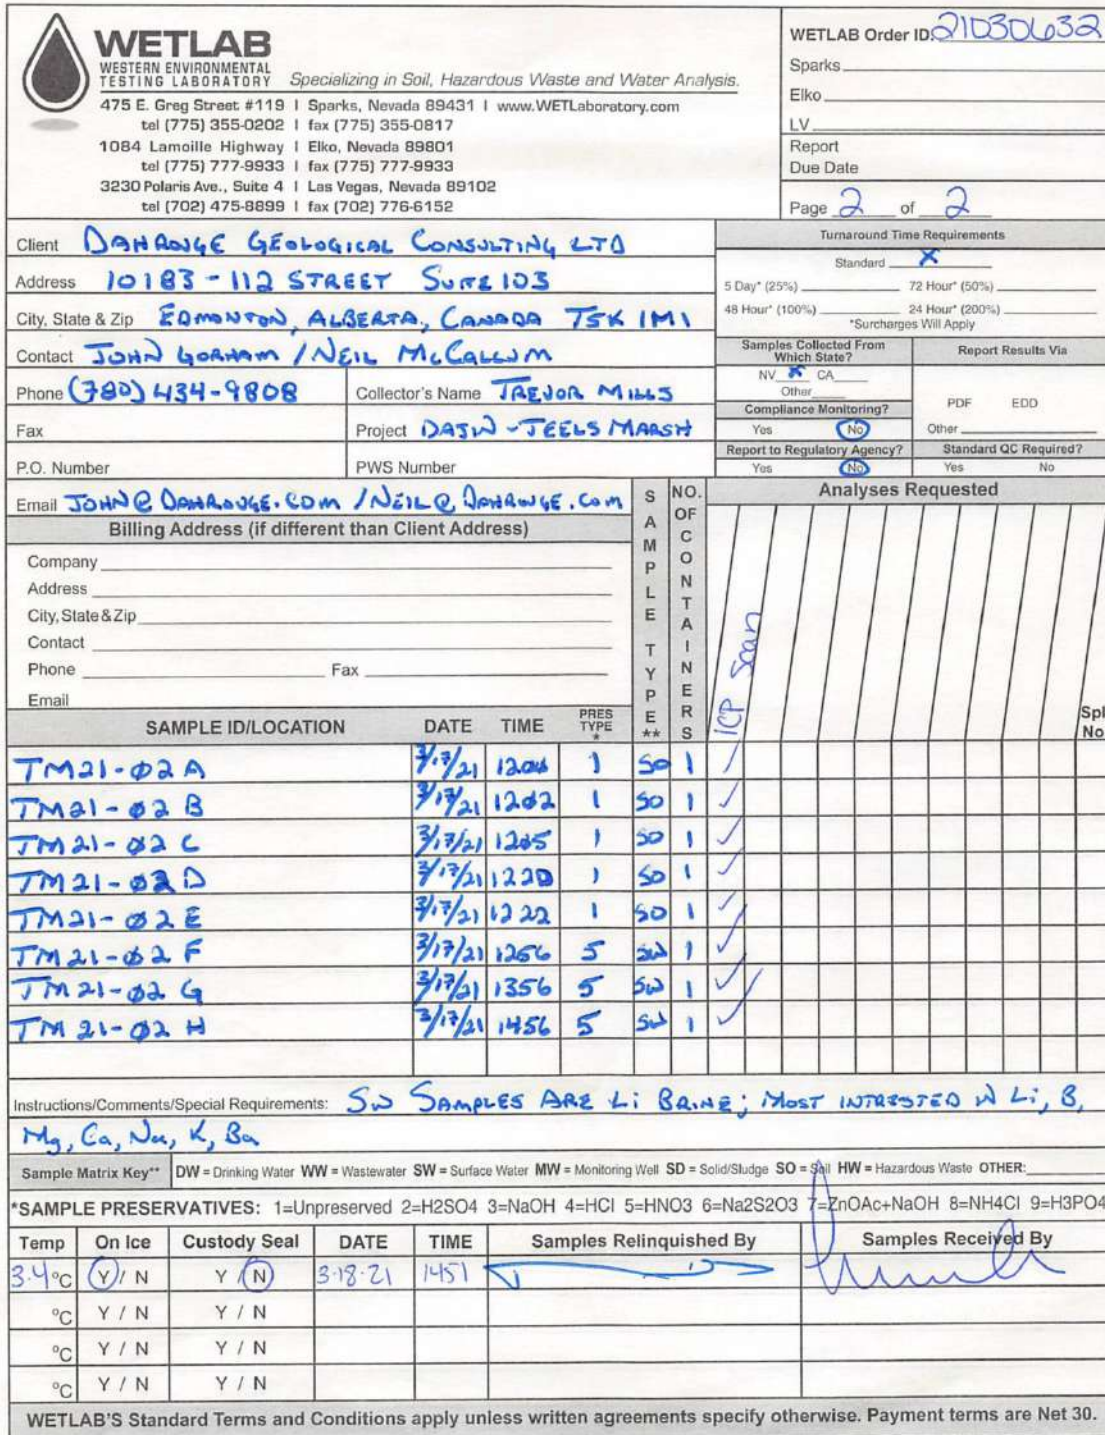 WETLAB
WESTERN ENVIRONMENTAL
TESTING LABORATORY Specializing in Soil, Hazardous Waste and Water Analysis.
475 E. Greg Street #119 | Sparks, Nevada 89431 | www.WETLaboratory.com
tel (775) 355-0202 | fax (775) 355-0817
1084 Lamoille Highway | Elko, Nevada 89801
tel (775) 777-9933 | fax (775) 777-9933
3230 Polaris Ave., Suite 4 | Las Vegas, Nevada 89102
tel (702) 475-8899 | fax (702) 776-6152
WETLAB Order ID. 21030632
Sparks
Elko
LV
Report
Due Date
Page 2 of 2
Client DAHROUGE GEOLOGICAL CONSULTING LTD
Address 10183 - 112 STREET SUITE 103
City, State & Zip EDMONTON, ALBERTA, CANADA T5K 1M1
Contact JOHN GORHAM / NEIL McCALLUM
Phone (780) 434-9808 Collector's Name TREVOR MILLS
Fax Project DAJIN - TEELS MARSH
P.O. Number PWS Number
Turnaround Time Requirements
Standard X
5 Day* (25%) 72 Hour* (50%)
48 Hour* (100%) 24 Hour* (200%)
*Surcharges Will Apply
Samples Collected From
Which State?
NV X CA
Other
Report Results Via
PDF EDD
Other
Compliance Monitoring?
Yes No
Report to Regulatory Agency?
Yes No
Standard QC Required?
Yes No
Email JOHN@DAHROUGE.COM / NEIL@DAHROUGE.COM
Billing Address (if different than Client Address)
Company
Address
City, State & Zip
Contact
Phone Fax
Email
SAMPLE TYPE **
NO. OF CONTAINERS
Analyses Requested
ICP Scan
Spl
No
SAMPLE ID/LOCATION DATE TIME PRES TYPE *
TM21-02 A 3/17/21 1200 1 SO 1 ✓
TM21-02 B 3/17/21 1202 1 SO 1 ✓
TM21-02 C 3/17/21 1205 1 SO 1 ✓
TM21-02 D 3/17/21 1220 1 SO 1 ✓
TM21-02 E 3/17/21 1222 1 SO 1 ✓
TM21-02 F 3/17/21 1256 5 SW 1 ✓
TM21-02 G 3/17/21 1356 5 SW 1 ✓
TM21-02 H 3/17/21 1456 5 SW 1 ✓
Instructions/Comments/Special Requirements: SW SAMPLES ARE Li BRINE; MOST INTRESTED IN Li, B,
Mg, Ca, Na, K, Ba
Sample Matrix Key** DW = Drinking Water WW = Wastewater SW = Surface Water MW = Monitoring Well SD = Solid/Sludge SO = Soil HW = Hazardous Waste OTHER:
*SAMPLE PRESERVATIVES: 1=Unpreserved 2=H2SO4 3=NaOH 4=HCl 5=HNO3 6=Na2S2O3 7=ZnOAc+NaOH 8=NH4Cl 9=H3PO4
Temp On Ice Custody Seal DATE TIME Samples Relinquished By Samples Received By
3.4 °C Y / N Y / N 3-18-21 1451
°C Y / N Y / N
°C Y / N Y / N
°C Y / N Y / N
WETLAB'S Standard Terms and Conditions apply unless written agreements specify otherwise. Payment terms are Net 30.